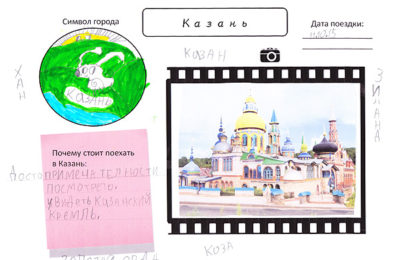 Символ города
Казань
Дата поездки:
КОЗАН
КАЗАНЬ
ХАН
ЗИЛАНА
Почему стоит поехать
в Казань:
ДОСТОПРИМЕЧАТЕЛНОСТИ
ПОСМОТРЕТЬ,
УВИДЕТЬ КАЗАНСКИЙ
КРЕМЛЬ.
КОЗА